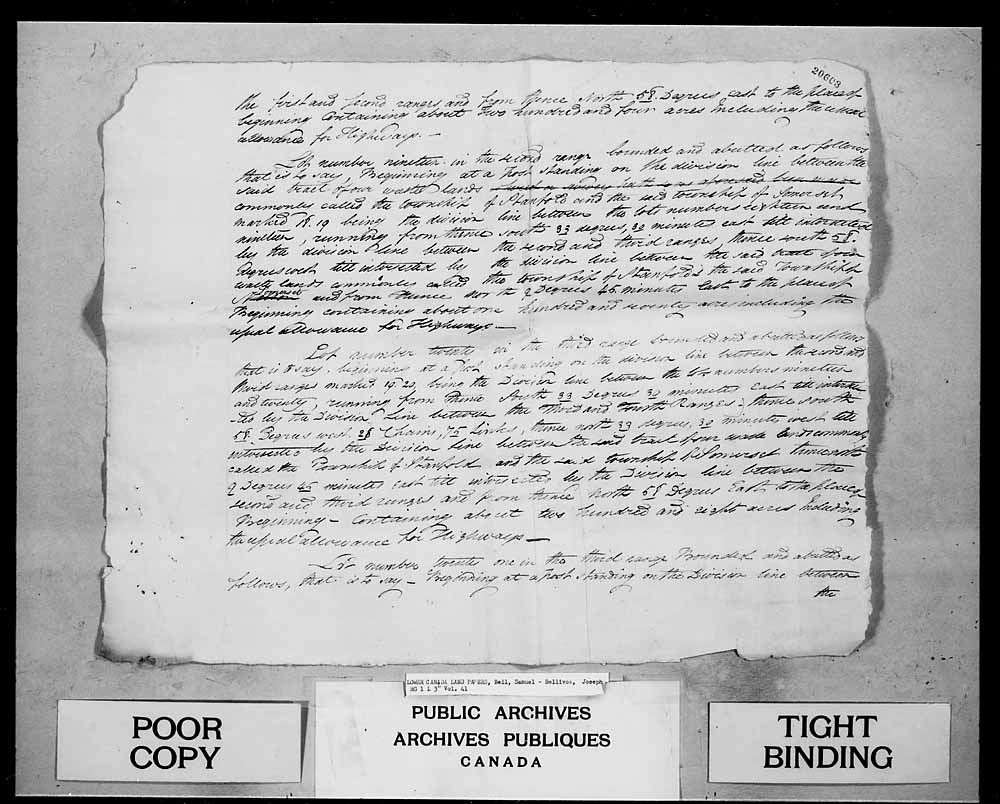 20603
the first and second ranges and from thence North 58 Degrees east to the place of
beginning Containing about Two hundred and four acres Including the usual
allowance for Highways. —
Lot number nineteen in the second range bounded and abutted as follows
that is to say, Beginning at a Post Standing on the division line between the
said tract of our waste lands
commonly called the township of Stanfold and the said township of Somerset
marked R. 19 being the division line between the lots number eighteen and
nineteen, running from thence South 33 degrees, 30 minutes east till intersected
by the division line between the second and third ranges, thence south 58
degrees west till intersected by the division line between the said tract of our
waste lands commonly called the township of Stanfold & the said Township of
Somerset and from thence north 9 Degrees 45 minutes East to the place of
Beginning containing about one hundred and seventy acres including the
usual allowance for Highways —
Lot number twenty in the third range bounded and abutted as follows
that is to say, beginning at a Post standing on the division line between the second and
third ranges marked 19 20, being the Division line between the lots numbers nineteen
and twenty, running from thence South 33 Degrees 30 minutes east till intersec
-ted by the Division Line between the Third and Fourth Ranges - thence south
58 Degrees west, 28 Chains, 75 Links, thence north 33 degrees, 30 minutes west till
intersected by the Division line between the said tract of our waste lands commonly
called the Township of Stanfold and the said township of Somerset thence north
9 Degrees 45 minutes east till intersected by the Division line between the
second and third ranges and from thence north 58 Degrees East to the place of
Beginning — Containing about two hundred and eight acres Including
the usual allowance for Highways —
Lot number twenty one in the third range Bounded and abutted as
follows, that is to say — Beginning at a post Standing on the Division line between
the
LOWER CANADA LAND PAPERS, Bell, Samuel - Bellivos, Joseph
RG 1 L 3" Vol. 41
POOR
COPY
PUBLIC ARCHIVES
ARCHIVES PUBLIQUES
CANADA
TIGHT
BINDING